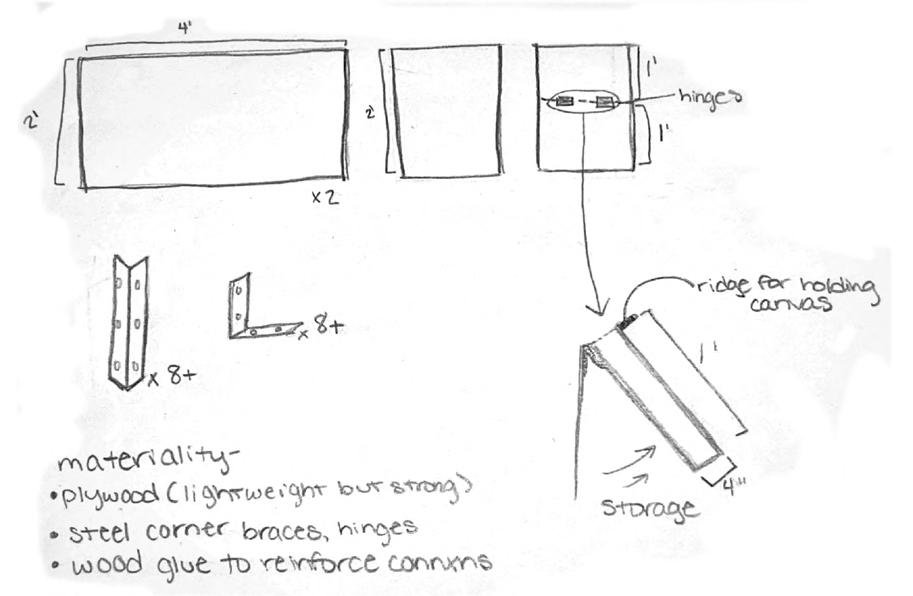 4'
2'
x2
2'
1'
1'
hinges
ridge for holding
canvas
1'
4"
storage
x 8+
x 8+
materiality-
• plywood (lightweight but strong)
• steel corner braces, hinges
• wood glue to reinforce